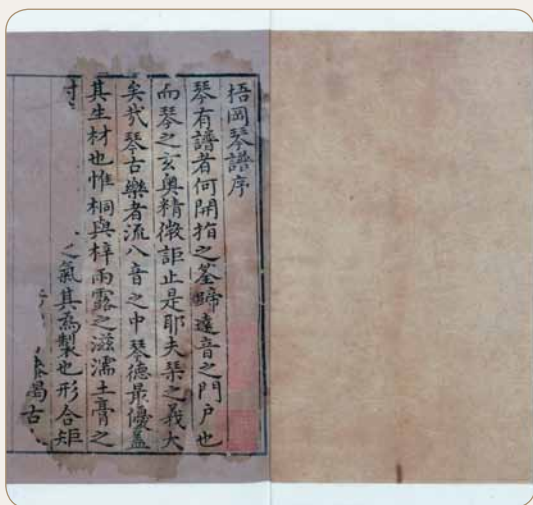 梧岡琴譜序
琴有譜者何開指之筌蹄遠音之門户也
而琴之玄奥精微詎止是耶夫琴之義大
矣哉琴古樂者流八音之中琴德最優蓋
其生材也惟桐與梓雨露之滋濡土膏之
之氣其為製也形合矩
古